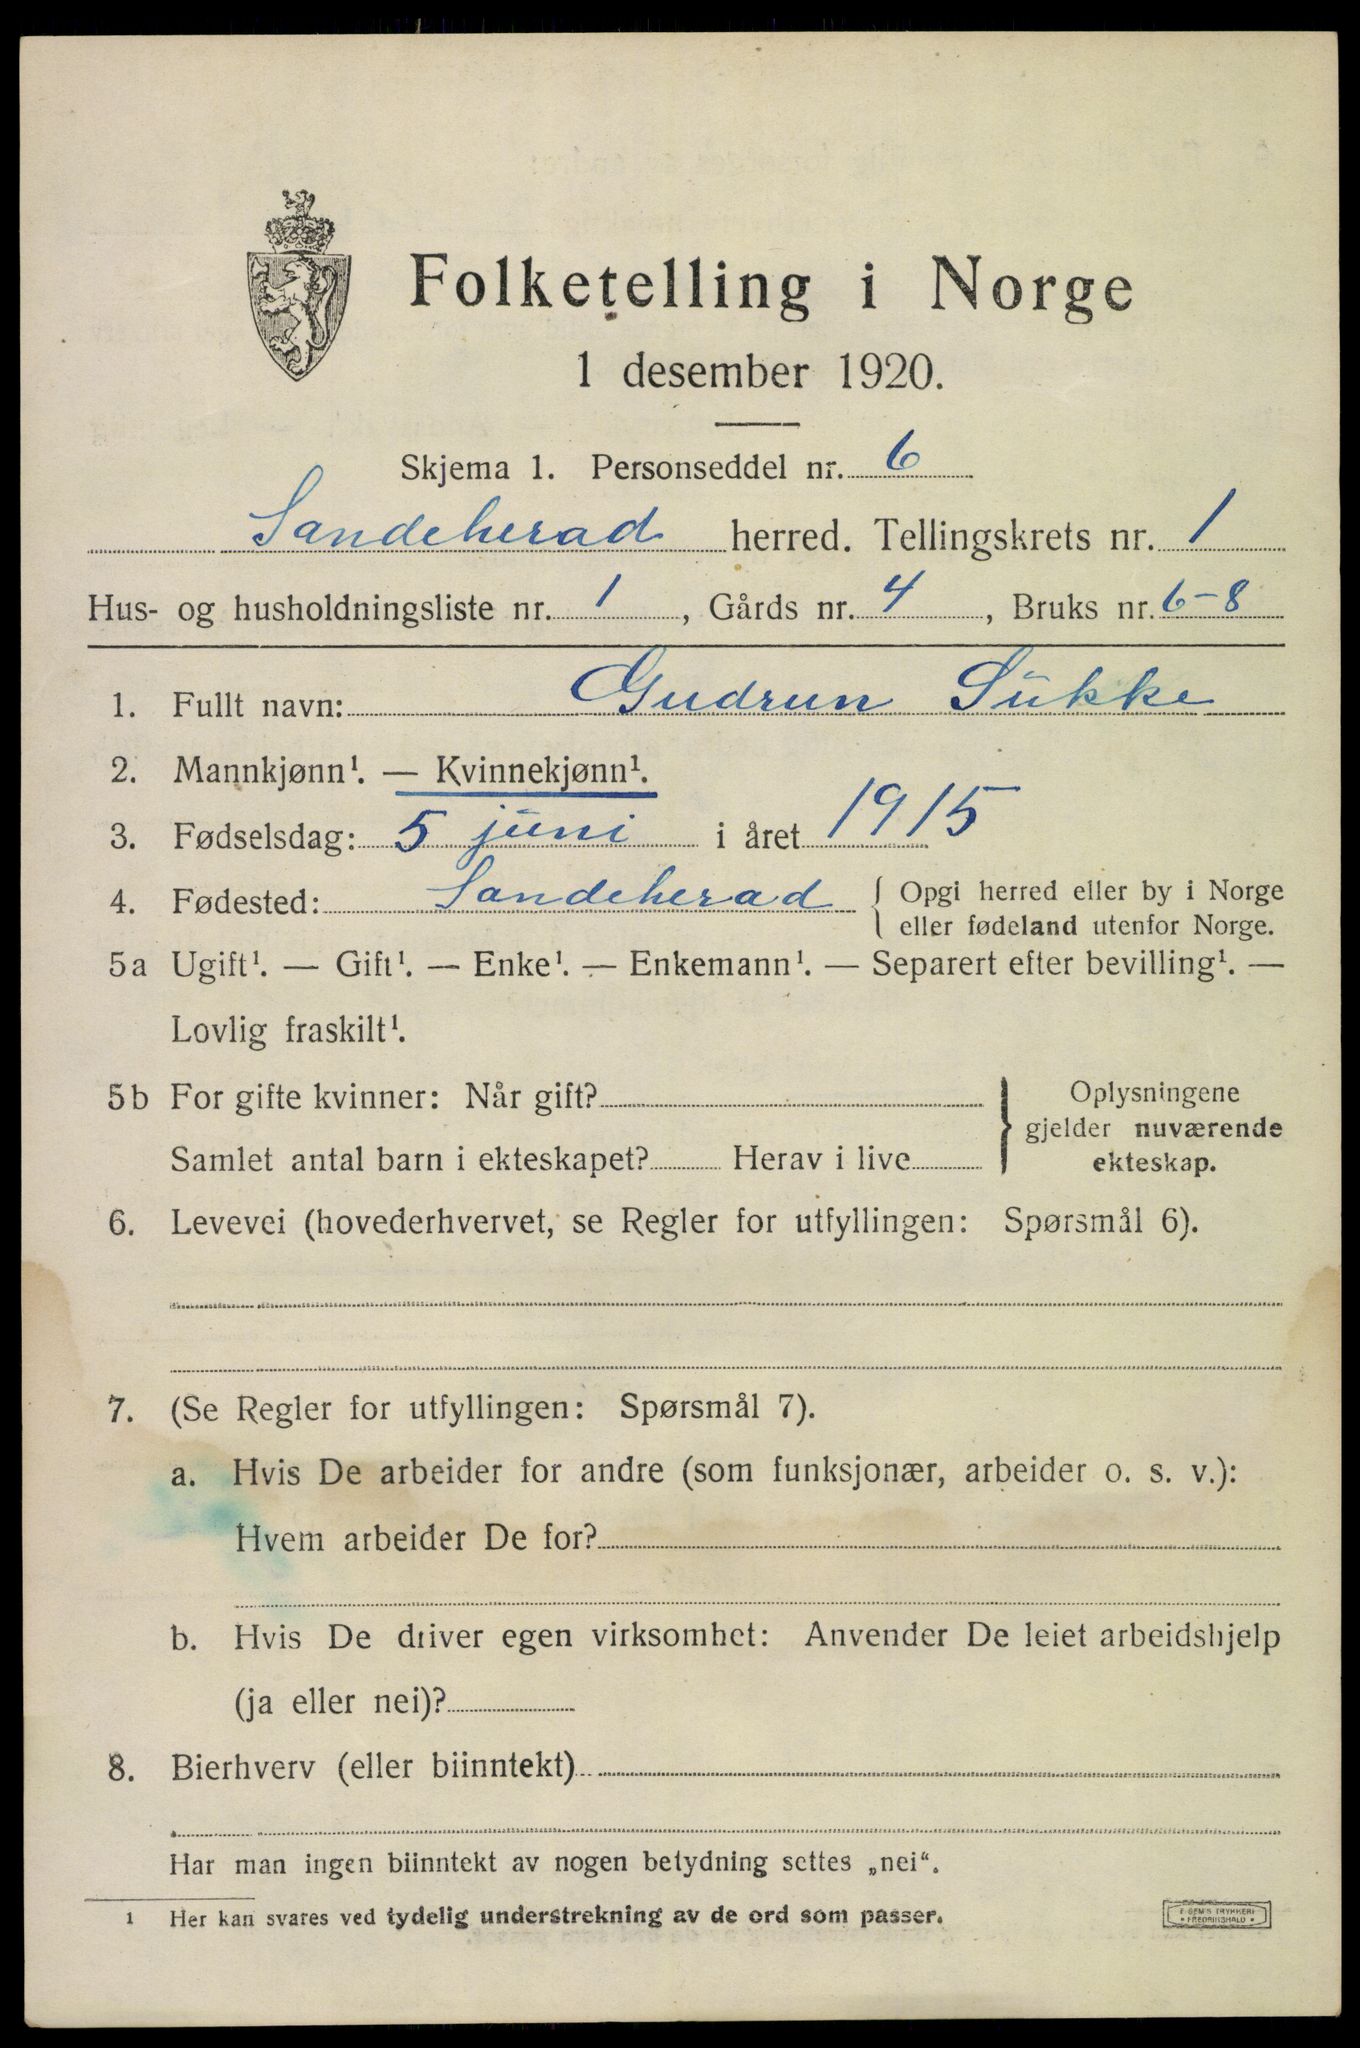 Folketelling i Norge
1 desember 1920.
Skjema 1. Personseddel nr. 6
Sandeherad herred. Tellingskrets nr. 1
Hus- og husholdningsliste nr. 1, Gårds nr. 4, Bruks nr. 6-8
1. Fullt navn: Gudrun Sukke
2. Mannkjønn¹. — Kvinnekjønn¹.
3. Fødselsdag: 5 juni i året 1915
4. Fødested: Sandeherad { Opgi herred eller by i Norge
eller fødeland utenfor Norge.
5a Ugift¹. — Gift¹. — Enke¹. — Enkemann¹. — Separert efter bevilling¹. —
Lovlig fraskilt¹.
5b For gifte kvinner: Når gift?
Samlet antal barn i ekteskapet? Herav i live
} Oplysningene
gjelder nuværende
ekteskap.
6. Levevei (hovederhvervet, se Regler for utfyllingen: Spørsmål 6).
7. (Se Regler for utfyllingen: Spørsmål 7).
a. Hvis De arbeider for andre (som funksjonær, arbeider o. s. v.):
Hvem arbeider De for?
b. Hvis De driver egen virksomhet: Anvender De leiet arbeidshjelp
(ja eller nei)?
8. Bierhverv (eller biinntekt)
Har man ingen biinntekt av nogen betydning settes „nei“.
1 Her kan svares ved tydelig understrekning av de ord som passer.
E. SEM'S TRYKKERI
• FREDRIKSHALD •